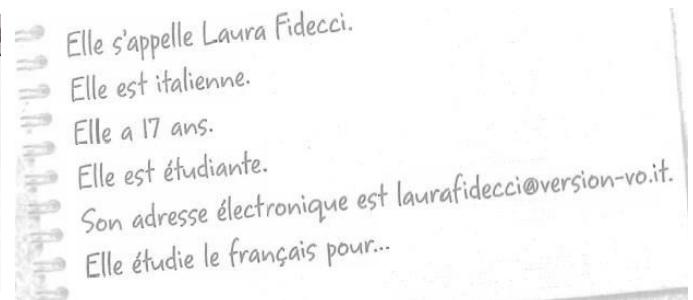 Elle s'appelle Laura Fidecci.
Elle est italienne.
Elle a 17 ans.
Elle est étudiante.
Son adresse électronique est laurafidecci@version-vo.it.
Elle étudie le français pour...